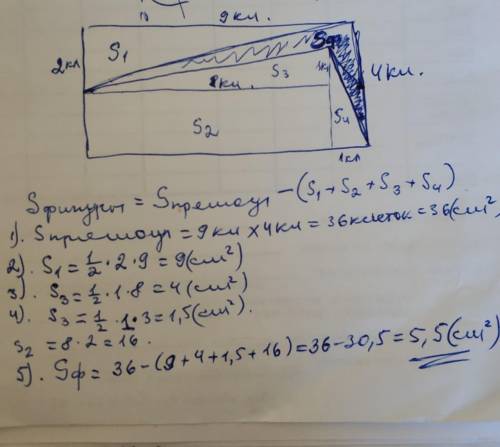 9кл.
S₁
2кл
Sф
S₃
4кл.
8кл.
1кл
S₂
S₄
1кл
Sфигуры = Sпрямоуг − (S₁ + S₂ + S₃ + S₄)
1). Sпрямоуг = 9кл × 4кл = 36клеток = 36(см²)
2). S₁ = 1/2 · 2 · 9 = 9(см²)
3). S₃ = 1/2 · 1 · 8 = 4(см²)
4). S₃ = 1/2 · 1 · 3 = 1,5(см²).
S₂ = 8 · 2 = 16.
5). Sф = 36 − (9 + 4 + 1,5 + 16) = 36 − 30,5 = 5,5(см²)